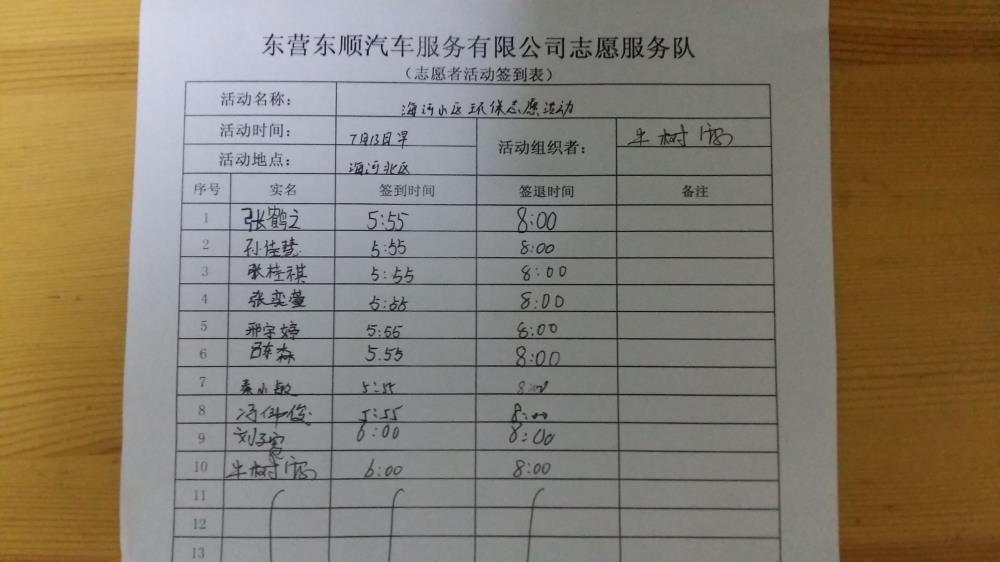 东营东顺汽车服务有限公司志愿服务队
（志愿者活动签到表）
活动名称： 海河小区环保志愿活动
活动时间： 7月13日早 活动组织者： 牛树
活动地点： 海河北区
序号 实名 签到时间 签退时间 备注
1 张鹤之 5:55 8:00
2 孙佳慧 5:55 8:00
3 张桂祺 5:55 8:00
4 张奕萱 5:55 8:00
5 邢宇婷 5:55 8:00
6 森 5.55 8:00
7 秦小敏 5:55 8:00
8 冯伟俊 5:55 8:00
9 刘子 6:00 8:00
10 牛树 6:00 8:00
11
12
13